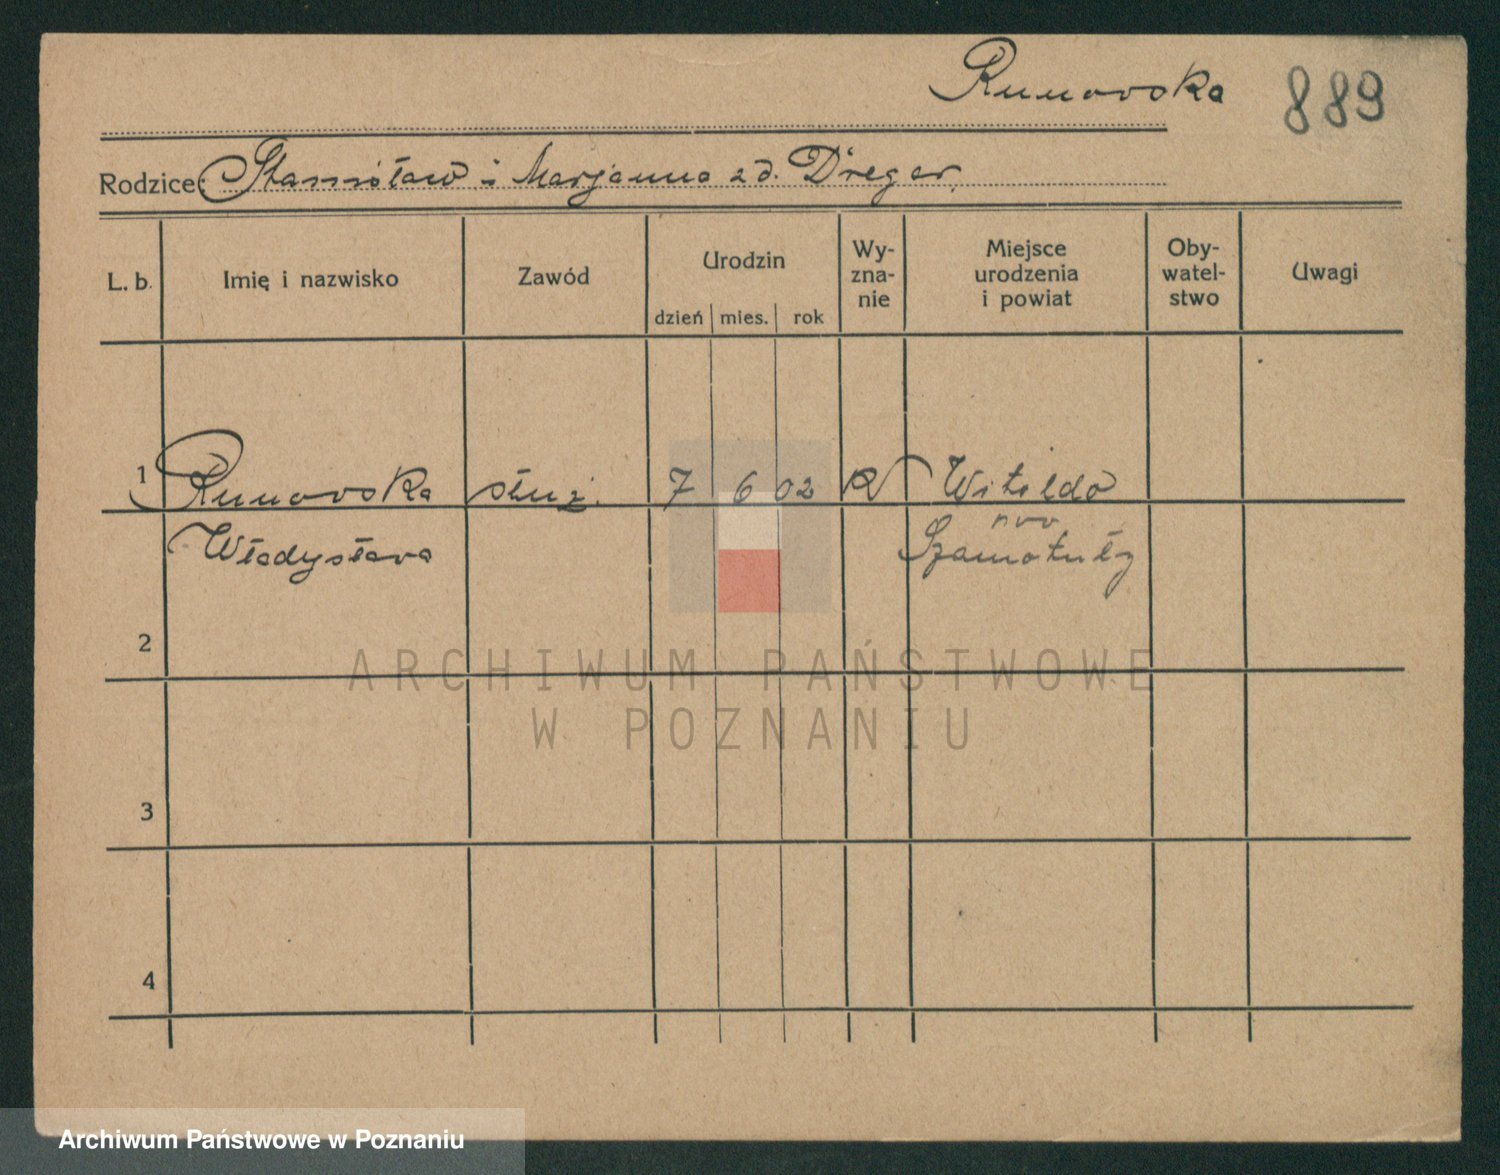 Runowska 889
Rodzice: Stanisław i Marjanna z d. Dreger.
L. b. Imię i nazwisko Zawód Urodzin dzień mies. rok Wy-zna-nie Miejsce urodzenia i powiat Oby-watel-stwo Uwagi
1 Runowska służ. 7 6 02 R
Władysława Szamotuły
2
3
4
ARCHIWUM PAŃSTWOWE
W POZNANIU
Archiwum Państwowe w Poznaniu